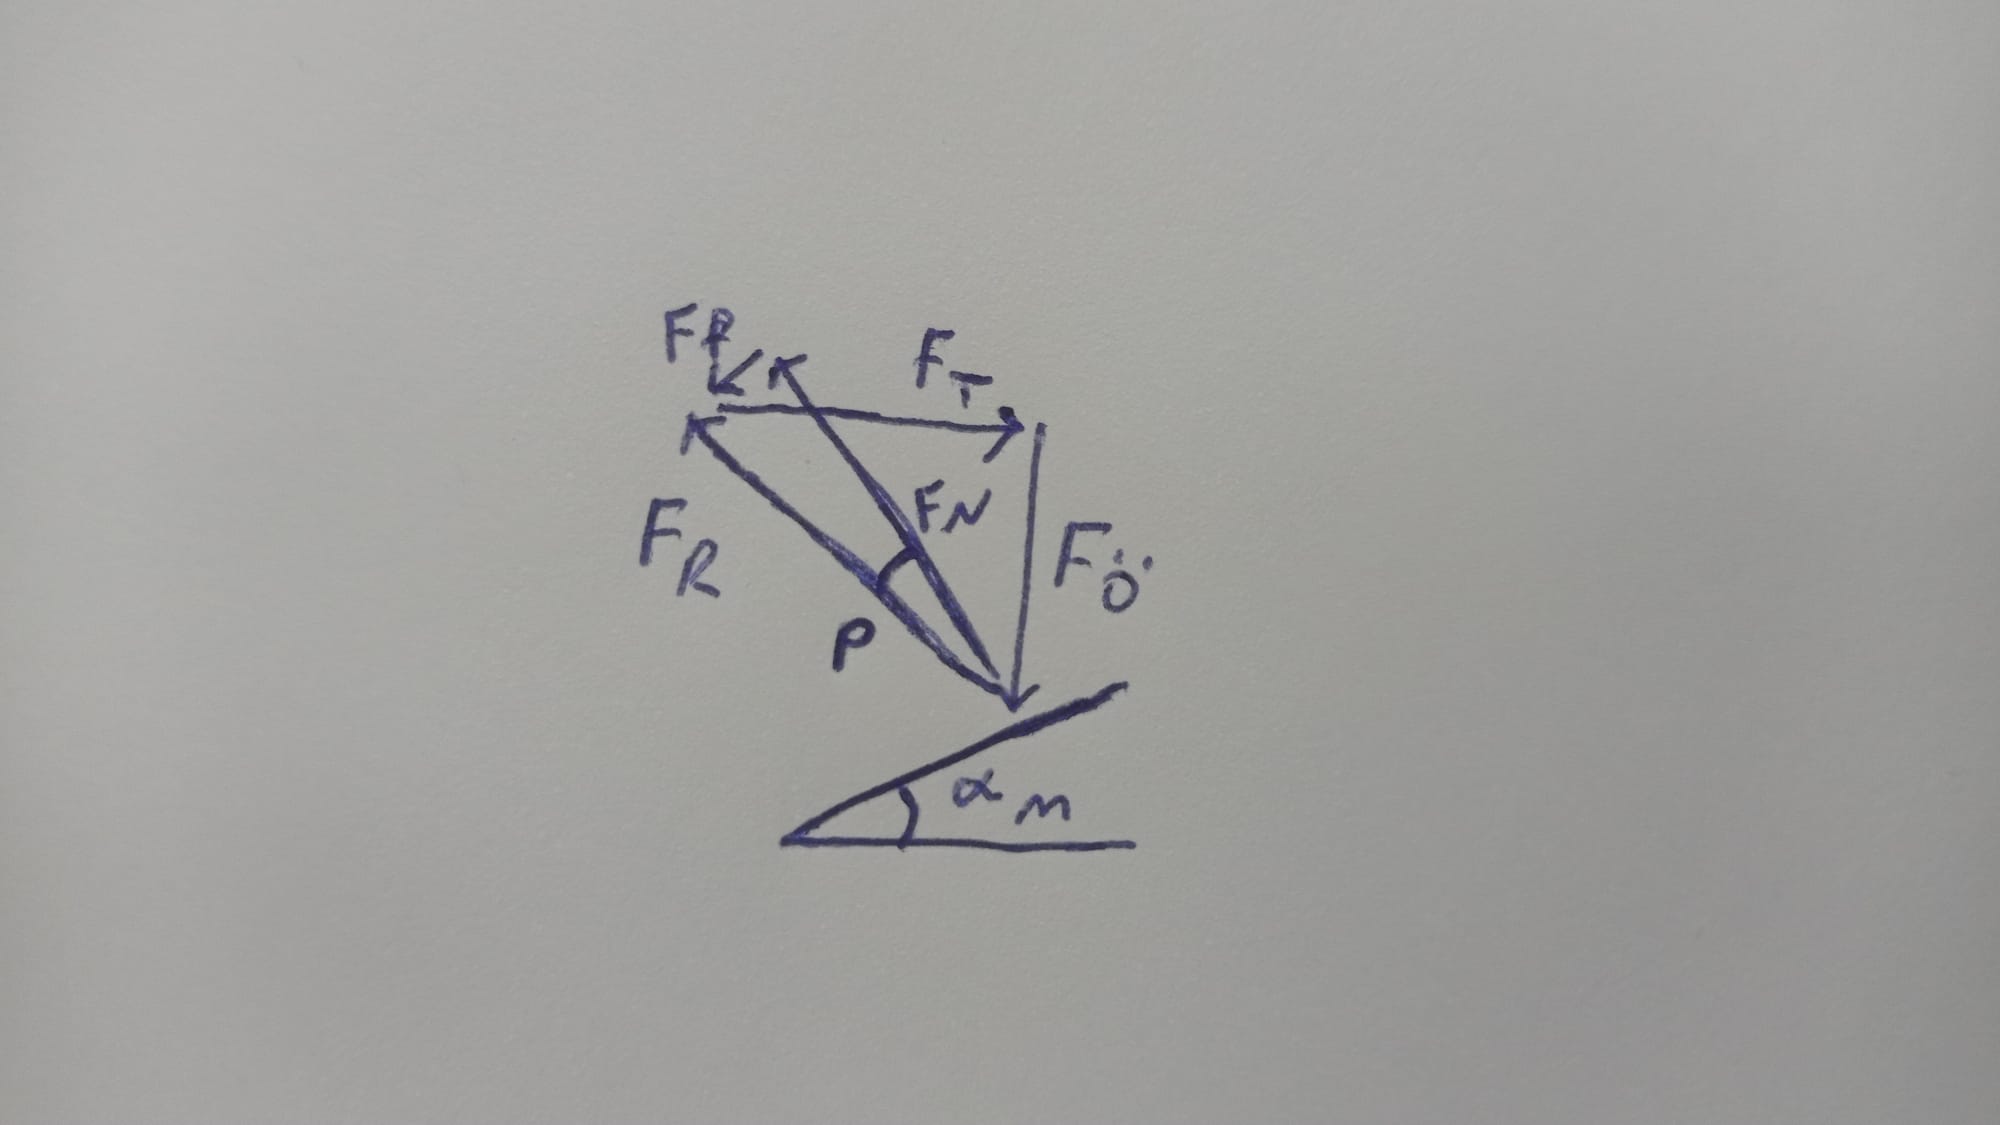 Ff
F_T
FN
F_R
F_Ö
ρ
α m